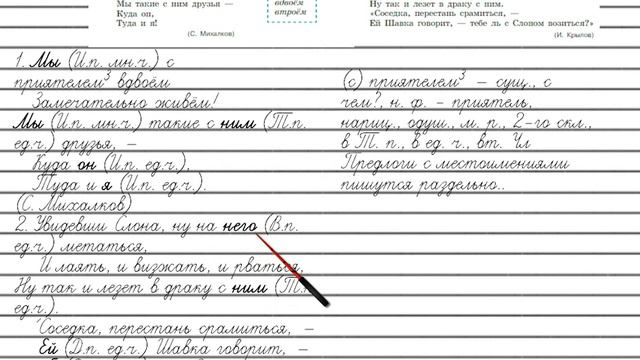 Мы такие с ним друзья —
Куда он,
Туда и я!
(С. Михалков)
вдвоём
втроём
Ну так и лезет в драку с ним.
«Соседка, перестань срамиться, —
Ей Шавка говорит, — тебе ль с Слоном возиться?»
(И. Крылов)
1. Мы (И.п. мн.ч.) с
приятелем³ вдвоём
Замечательно живём!
Мы (И.п. мн.ч.) такие с ним (Т.п.
ед.ч.) друзья, —
Куда он (И.п. ед.ч.),
Туда и я (И.п. ед.ч.).
(С. Михалков)
2. Увидевши Слона, ну на него (В.п.
ед.ч.) метаться,
И лаять, и визжать, и рваться,
Ну так и лезет в драку с ним (Т.п.
ед.ч.).
"Соседка, перестань срамиться, —
Ей (Д.п. ед.ч.) Шавка говорит, —
(с) приятелем³ – сущ., с
чем?, н. ф. – приятель,
нариц., одуш., м. р., 2-го скл.,
в Т. п., в ед. ч., вт. Чл
Предлоги с местоимениями
пишутся раздельно..